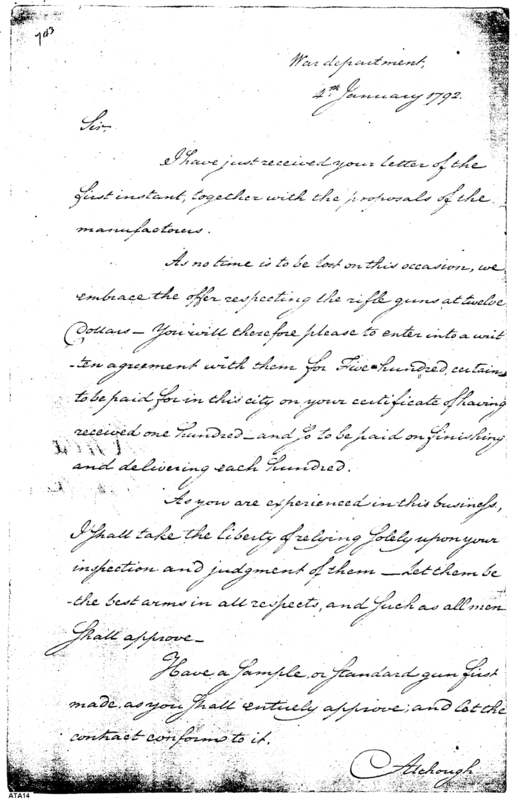 743
War department,
4th January 1792.
Sir
I have just received your letter of the
first instant, together with the proposals of the
manufactorers.
As no time is to be lost on this occasion, we
embrace the offer respecting the rifle guns at twelve
Dollars — You will therefore please to enter into a writ
-ten agreement with them for Five hundred, certain
to be paid for in this city on your certificate of having
received one hundred — and so to be paid on finishing
and delivering each hundred.
As you are experienced in this business,
I shall take the liberty of relying solely upon your
inspection and judgment of them — Let them be
the best arms in all respects, and such as all men
shall approve —
Have a sample, or standard gun first
made, as you shall entirely approve; and let the
contract conform to it.
Although
ATA14